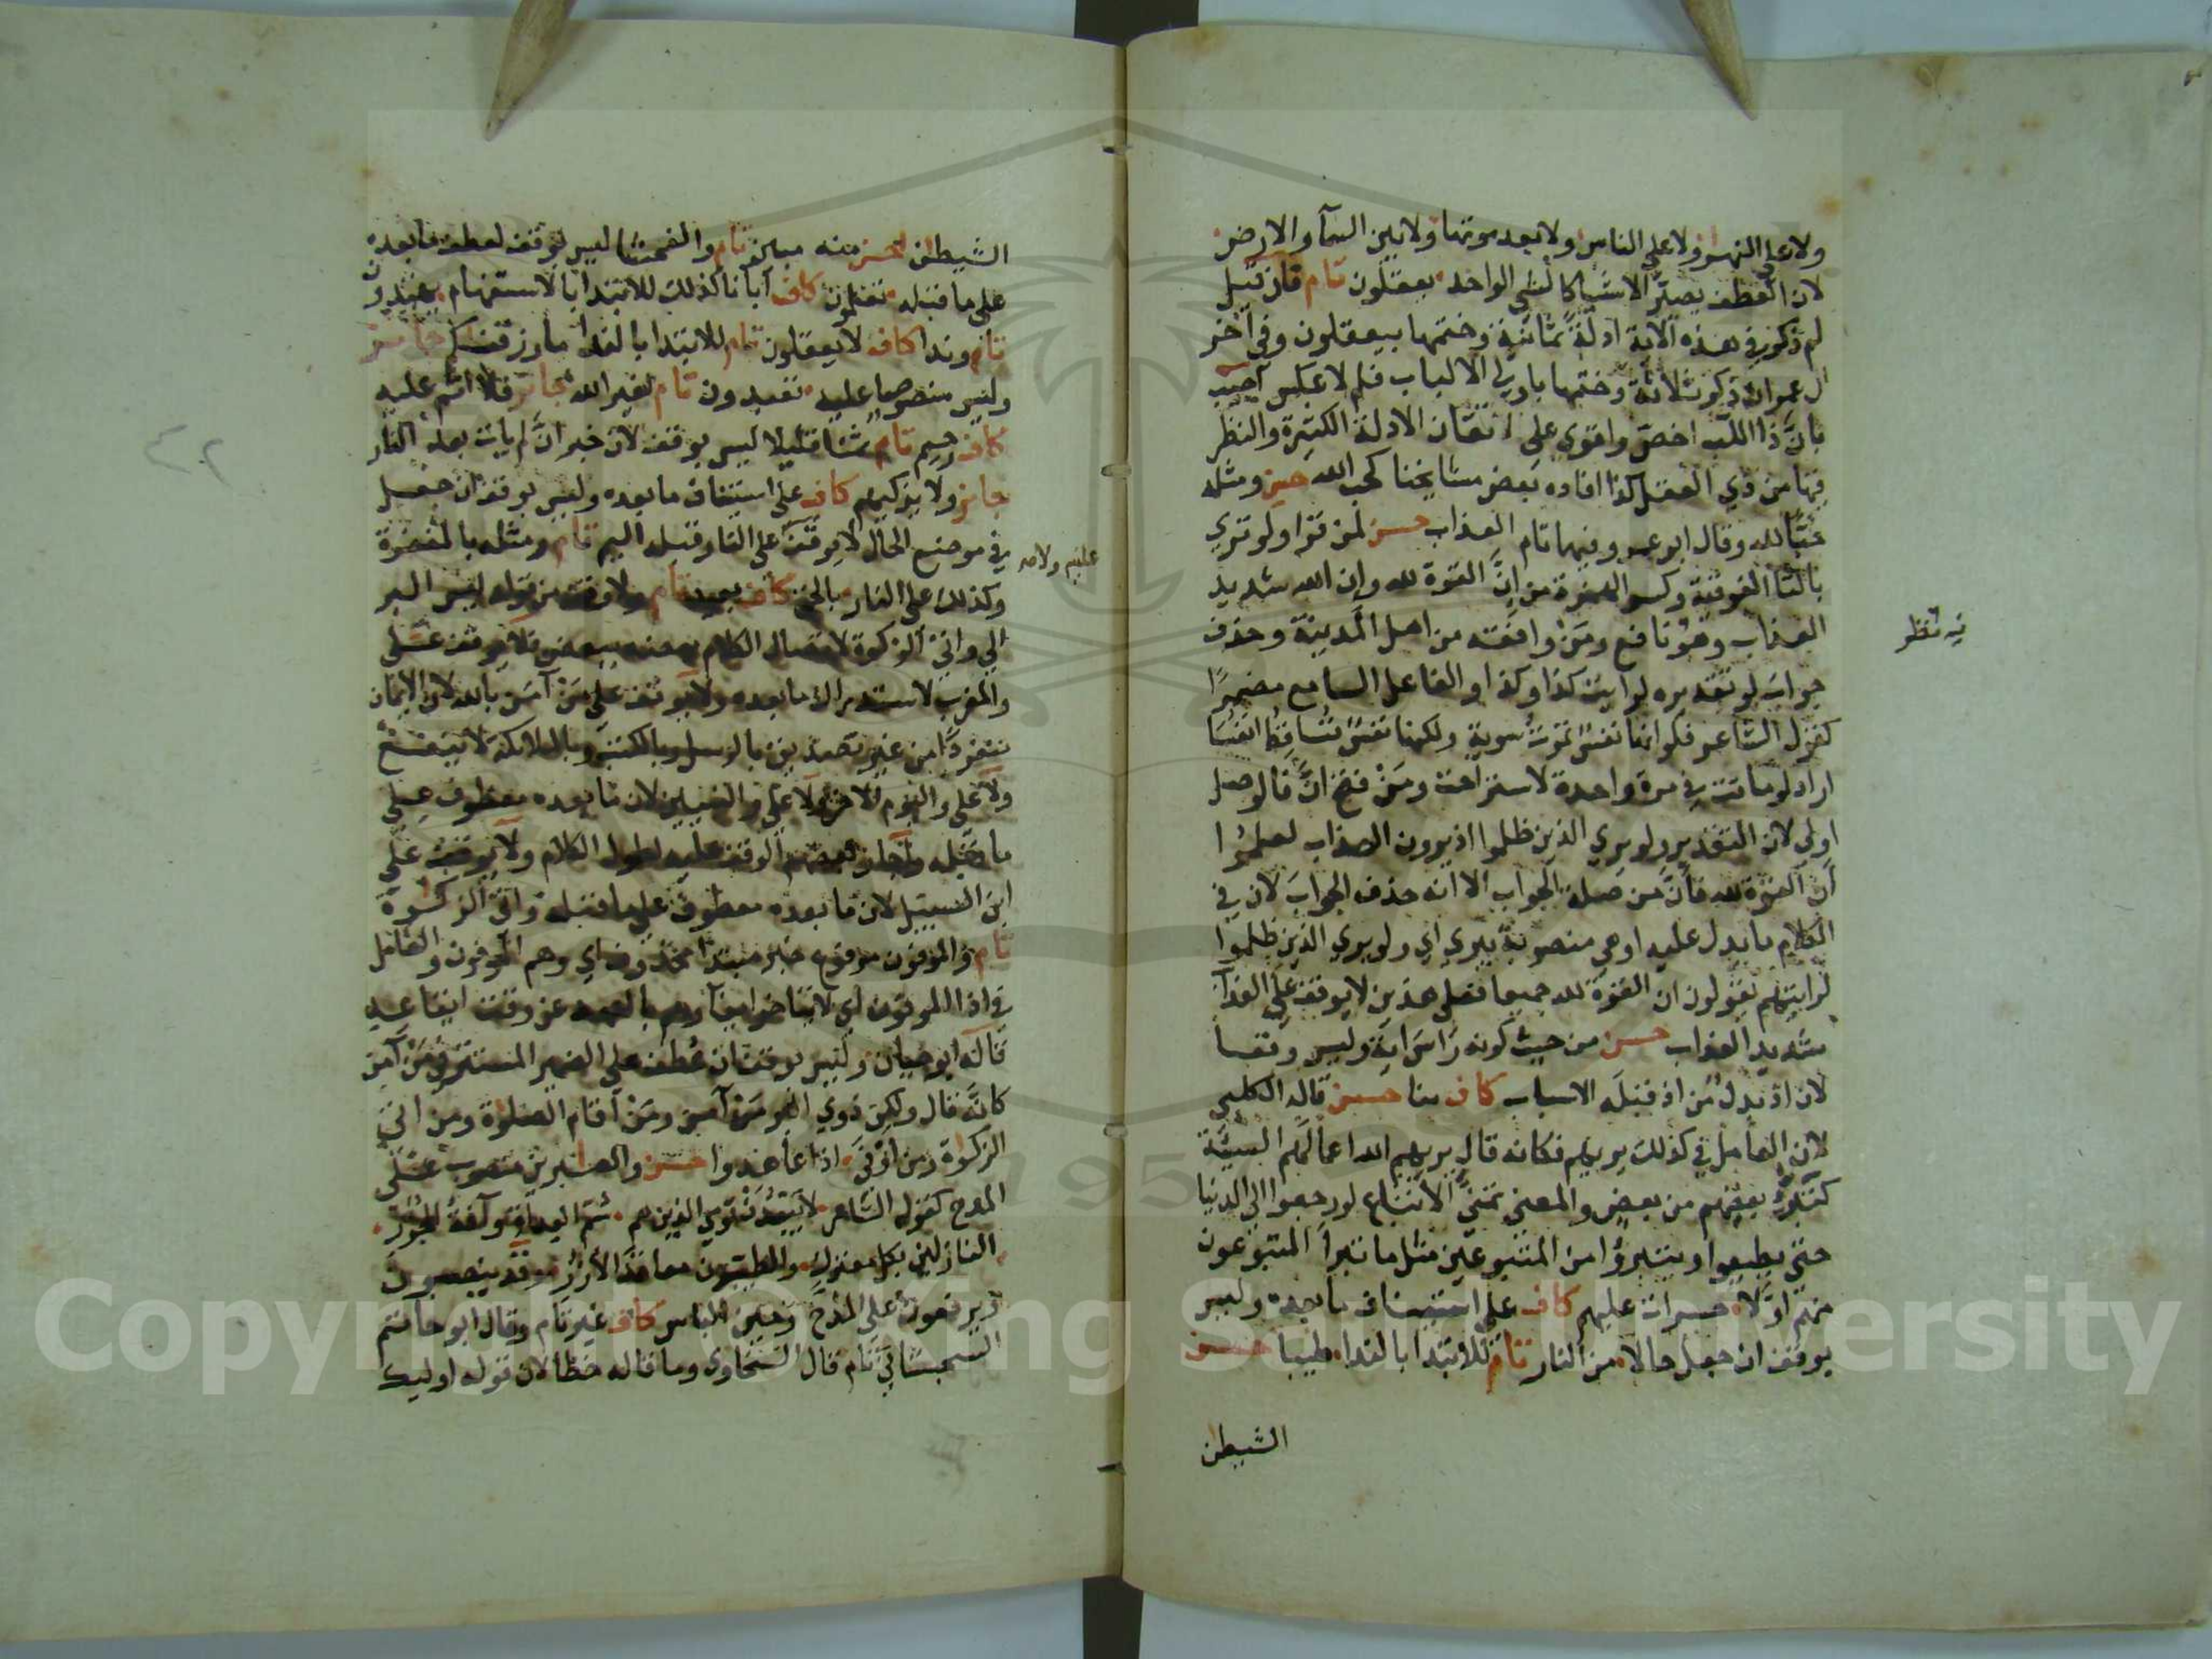 ولا على النهر ولا على الناس ولا بعد موتها ولا بين السمآ والارض
لان العطف يصير الاشيا كالشي الواحد يعقلون تام فان قيل
لم ذكر في هذه الآية ادلة ثمانية وختمها بيعقلون وفي آخر
ال عمران ذكر ثلاثة وختمها باولي الالباب فلم لا عكس اجيب
بانَّ ذا اللب اخص واقوى على اتقان الادلة الكثيرة والنظر
فيها من ذي العقل كذا افاده بعض مشايخنا كحب الله حسن ومثله
حبًا لله وقال ابو عمرو فيها تام العذاب حسن لمن قرا ولو تري
بالتا الفوقية وكسر الهمزة من اِنَّ القوة لله وان الله شديد
العذاب وهو نافع ومَنْ وافقه من اهل المدينة وحذف
جواب لو تقديره لرايت كذا وكذا او الفاعل السامع مضمرًا
كقول الشاعر فلو انها نفسٌ تموت سوية ولكنها نفسٌ تساقط انفسا
اراد لو ماتت في مرة واحدة لاستراحت ومَنْ فتح انَّ فالوصل
اولى لان التقدير ولو يري الذين ظلموا اذ يرون العذاب لعلموا
أنَّ القوة لله فأنَّ من صلة الجواب الا انه حذف الجواب لان في
الكلام ما يدل عليه او هي منصوبة بيري اي ولو يري الذين ظلموا
لرايتهم يقولون ان القوة لله جميعا فعلى هذين لا يوقف على العذاب
شديد العذاب حسن من حيث كونه رَاسَ ايةٍ وليس وقفا
لان اذ بدل من اذ قبله الاسباب كاف منا حسن قاله الكلبي
لان العامل في كذلك يريهم فكانه قال يريهم الله اعمالهم السيئة
كتبرؤ بعضهم من بعض والمعنى تمنى الاتباع لو رجعوا الى الدنيا
حتى يطيعوا ويتبرؤا من المتبوعين مثل ما تبرأ المتبوعون
منهم اولًا حسرات عليهم كاف على استيناف ما بعده وليس
بوقف ان جعل حالا من النار تام للابتدا بالندا طيبا حسن
الشيطن
فيه نظر
الشيطن احسن منه مبين تام والفحشا ليس بوقف لعطف ما بعده
على ما قبله تعلمون كاف آبآنا كذلك للابتدا بالاستفهام يهتدون
تام وندا كاف لا يعقلون تام للابتدا بالندا ما رزقنكم جائز
وليس منصوصا عليه تعبدون تام لغير الله جائز فلا اثم عليه
كاف رحيم تام ثمنا قليلا ليس بوقف لان خبر انَّ لم يات بعد النار
جائز ولا يزكيهم كاف على استيناف ما بعده وليس بوقف ان جعل
في موضع الحال لا يوقف على النار قبله اليم تام ومثله بالمغفرة
عليه ولامه
وكذلك على النار بالحق كاف بعيد تام ولا وقف من قوله ليس البر
الى واتى الزكوة لاتصال الكلام بعضه ببعض فلا يوقف على
والمغرب لاستدراك ما بعده ولا يوقف على مَنْ آمَنَ بالله لان الايمان
منفردًا من غير تصديق بالرسل وبالكتب وبالملائكة لا ينفع
ولا على واليوم الاخر ولا على والنبيين لان ما بعده معطوف على
ما قبله واجاز بعضهم الوقف عليه لطول الكلام ولا يوقف على
ابن السبيل لان ما بعده معطوف على ما قبله واتى الزكوة
تام والموفون مرفوع خبر مبتدا محذوف اي وهم الموفون والعامل
في اذا الموفون اي لا يتاخر ايفآؤهم بالعهد عن وقت ايقاعه
قاله ابو حيان وليس بوقف ان عُطف على الضمير المستتر في مَنْ آمن
كانه قال ولكن ذوي البر مَنْ آمن ومَنْ اقام الصلوة ومن اتى
الزكوة ومن اوْفى اذا عاهدوا حسن والصابرين منصوب على
المدح كقول الشاعر لا يَبْعُدَنْ قومي الذين هم سُمّ العداة وآفة الجزر
النازلين بكل معترك والطيبون معاقد الازر وقد ينصبون
ويرفعون على المدح وحين الباس كاف غير تام وقال ابو حاتم
السجستاني تام قال السخاوي وما قاله خطأ لان قوله اوليك
٤٢